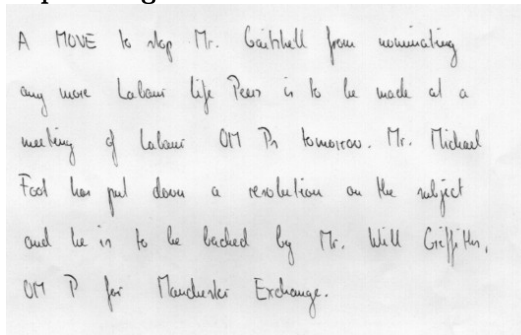 A MOVE to stop Mr. Gaitskell from nominating
any more Labour Life Peers is to be made at a
meeting of Labour OM Ps tomorrow. Mr. Michael
Foot has put down a resolution on the subject
and he is to be backed by Mr. Will Griffiths,
OM P for Manchester Exchange.